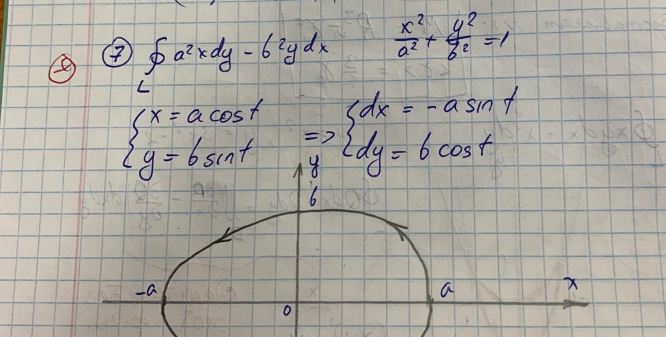 ⑦ ∮ a²xdy - b²ydx x²/a² + y²/b² = 1
L
{ x = a cost => { dx = -a sin t
{ y = b sint { dy = b cost
y
b
-a 0 a x